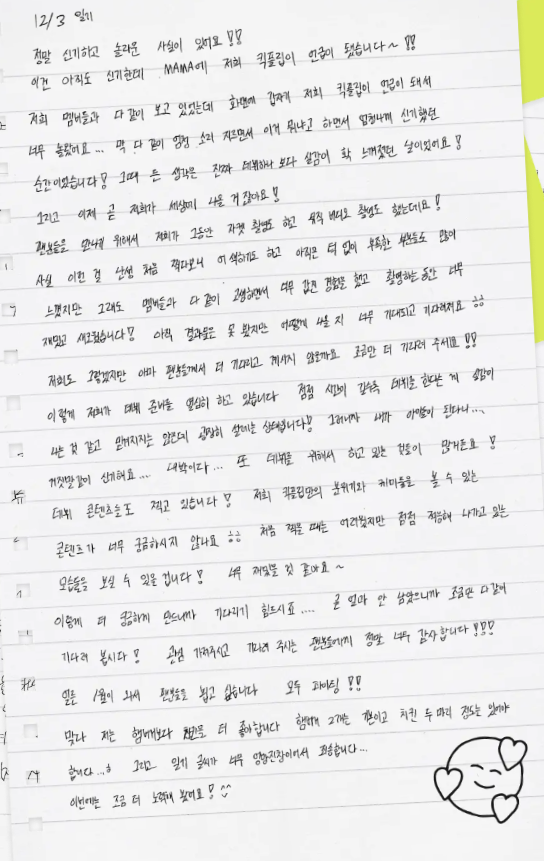 12/3 일기
정말 신기하고 놀라운 사실이 있어요!!
이건 아직도 신기한데 MAMA에 저희 킥플립이 언급이 됐습니다~!!
저희 멤버들과 다 같이 보고 있었는데 화면에 갑자기 저희 킥플립이 언급이 돼서
너무 놀랐어요... 막 다 같이 엄청 소리 지르면서 이거 뭐냐고 하면서 엄청나게 신기했던
순간이었습니다! 그때 든 생각은 진짜 데뷔하나 보다 실감이 확 느껴졌던 날이었어요!
그리고 이제 곧 저희가 세상에 나올 거 잖아요!
팬분들을 만나기 위해서 저희가 그동안 자켓 촬영도 하고 뮤직 비디오 촬영도 했는데요!
사실 이런 걸 난생 처음 찍다보니 어색하기도 하고 아직은 턱 없이 부족한 부분들도 많이
느꼈지만 그래도 멤버들과 다 같이 고생하면서 너무 값진 경험을 했고 촬영하는 동안 너무
재밌고 새로웠습니다! 아직 결과물은 못 봤지만 어떻게 나올 지 너무 기대되고 기다려져요 ㅎㅎ
저희도 그렇겠지만 아마 팬분들께서 더 기다리고 계시지 않을까요 조금만 더 기다려 주세요!!
이렇게 저희가 데뷔 준비를 열심히 하고 있습니다 점점 시간이 갈수록 데뷔를 한다는 게 실감이
나는 것 같고 믿겨지지는 않은데 굉장히 설레는 상태입니다! 그러니까 내가 아이돌이 된다니...
거짓말같이 신기해요... 대박이다... 또 데뷔를 위해서 하고 있는 것들이 많거든요!
데뷔 콘텐츠들도 찍고 있습니다! 저희 킥플립만의 분위기와 케미들을 볼 수 있는
콘텐츠가 너무 궁금하시지 않나요 ㅎㅎ 처음 찍을 때는 어려웠지만 점점 적응해 나가고 있는
모습들을 보실 수 있을 겁니다! 너무 재밌을 것 같아요~
이렇게 더 궁금하게 만드니까 기다리기 힘드시죠.... 곧 얼마 안 남았으니까 조금만 다 같이
기다려 봅시다! 관심 가져주시고 기다려 주시는 팬분들에게 정말 너무 감사합니다!!!
얼른 1월이 와서 팬분들을 뵙고 싶습니다 모두 파이팅!!
맞다 저는 햄버거보다 치킨을 더 좋아합니다 햄버거 2개는 기본이고 치킨 두 마리 정도는 있어야
합니다..ㅎ 그리고 일기 글씨가 너무 엉망진창이어서 죄송합니다...
이번에는 조금 더 노력해 봤어요! ^^